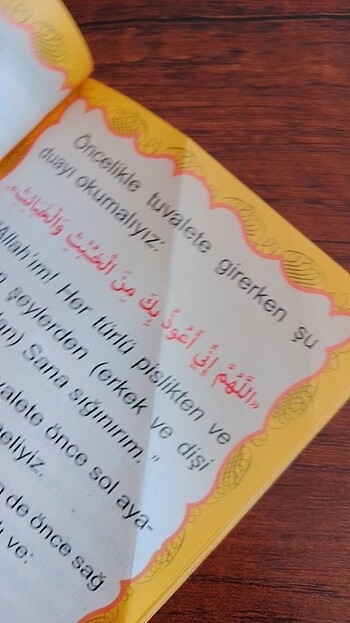 Öncelikle tuvalete girerken şu
duayı okumalıyız:
«اَللّٰهُمَّ إِنِّي أَعُوذُ بِكَ مِنَ الْخُبُثِ وَالْخَبَائِثِ».
"Allah'ım! Her türlü pislikten ve
şeylerden (erkek ve dişi
Sana sığınırım."
önce sol aya-
de önce sağ
ve: